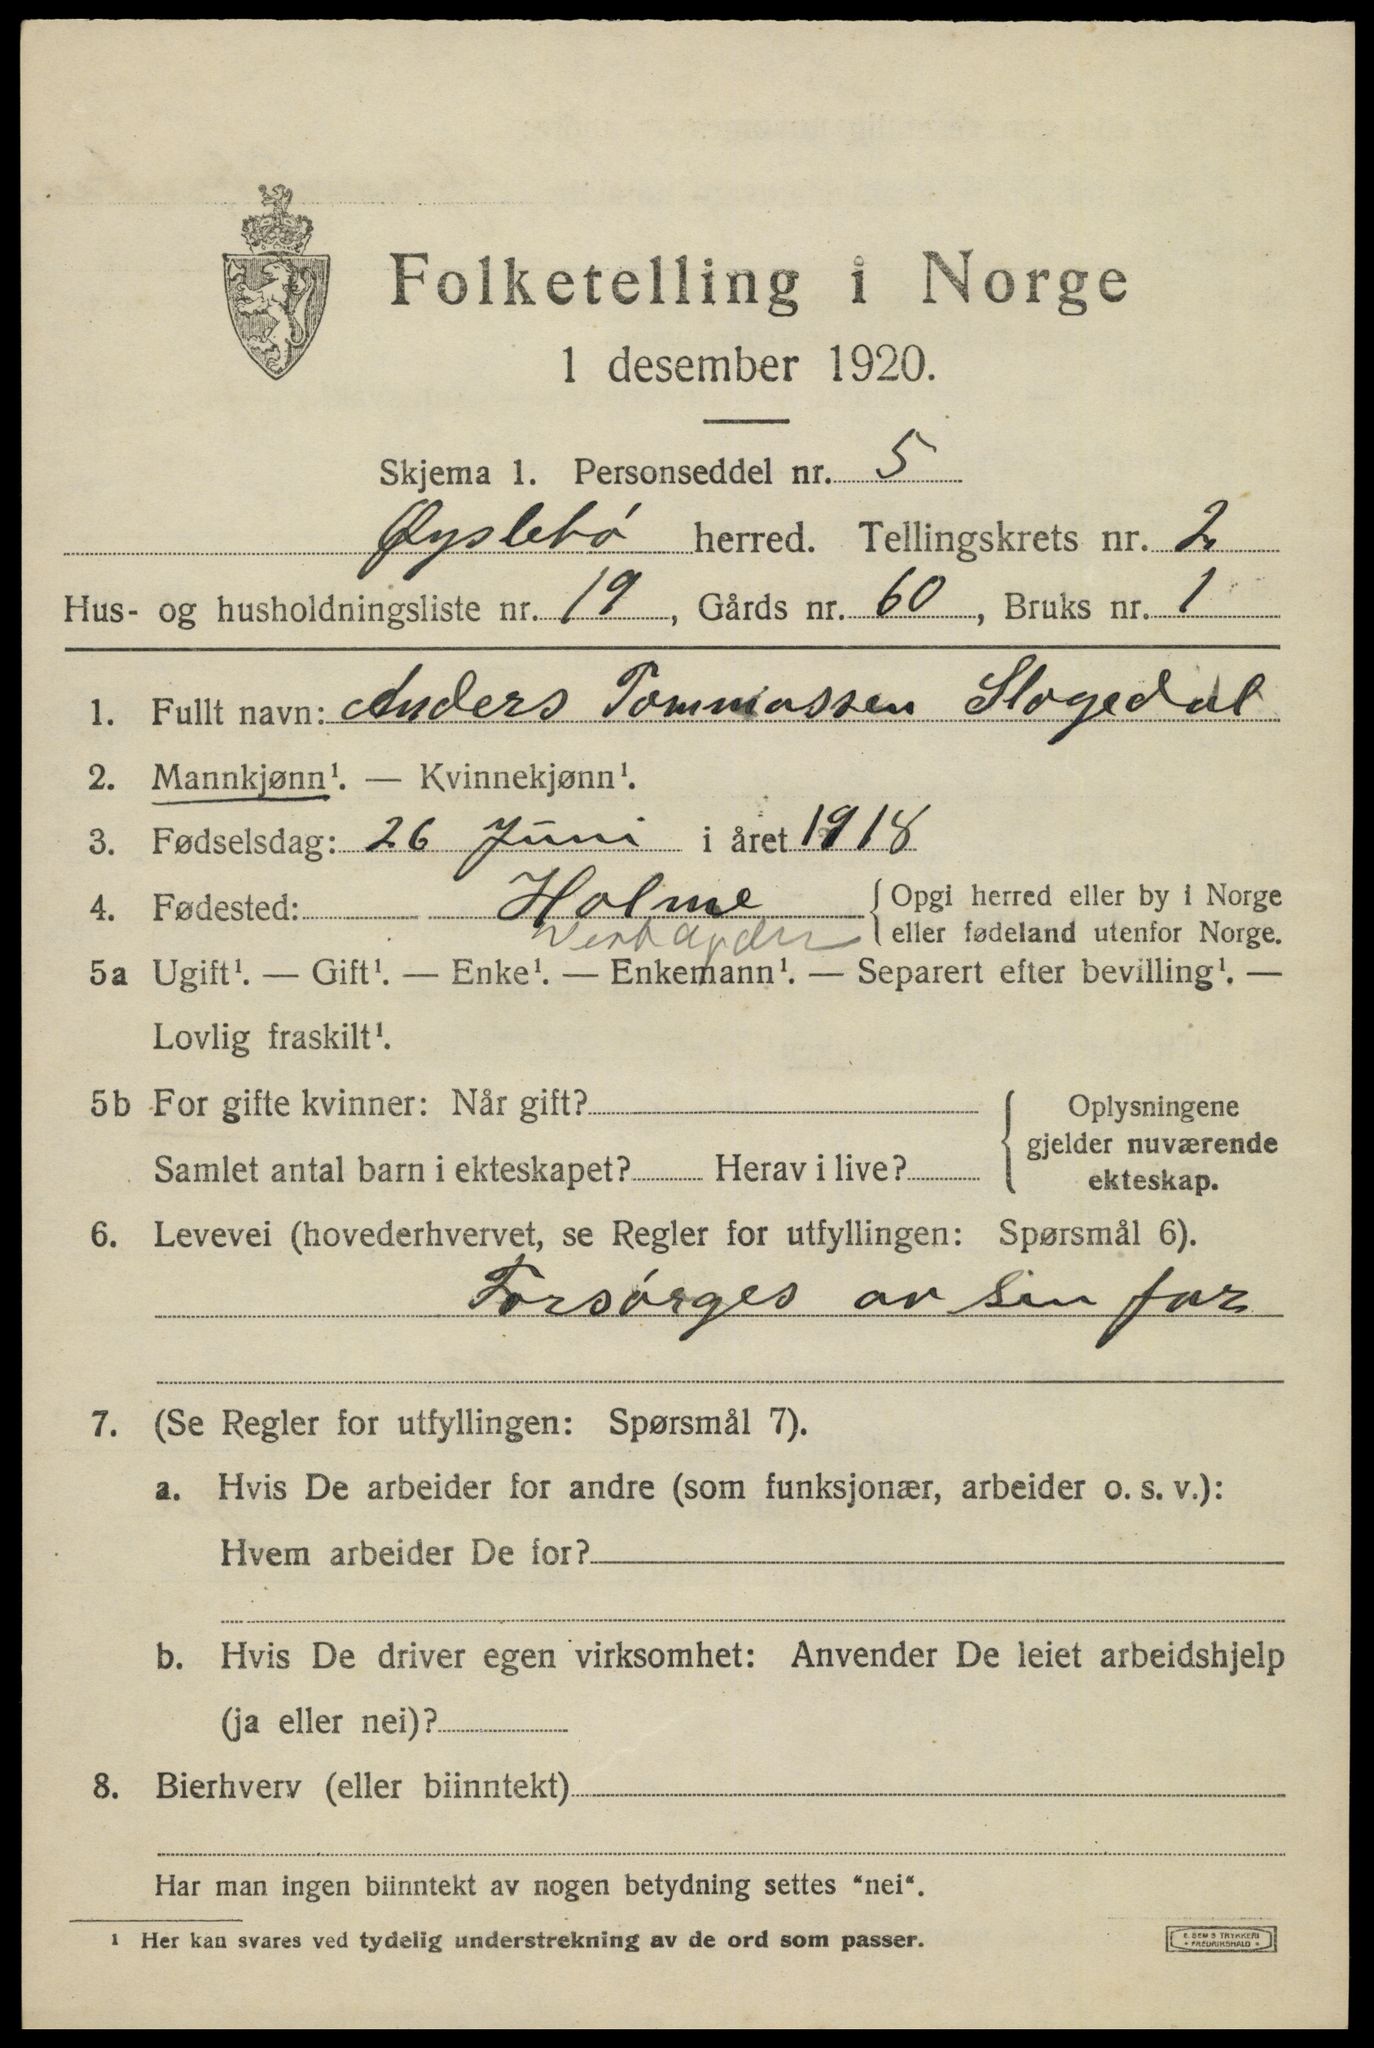 Folketelling i Norge
1 desember 1920.
Skjema 1. Personseddel nr. 5
Øyslebó herred. Tellingskrets nr. 2
Hus- og husholdningsliste nr. 19, Gårds nr. 60, Bruks nr. 1
1. Fullt navn: Anders Tommassen Slogedal
2. Mannkjønn¹. — Kvinnekjønn¹.
3. Fødselsdag: 26 Juni i året 1918
4. Fødested: Holme { Opgi herred eller by i Norge
eller fødeland utenfor Norge.
5a Ugift¹. — Gift¹. — Enke¹. — Enkemann¹. — Separert efter bevilling¹. —
Lovlig fraskilt¹.
5b For gifte kvinner: Når gift?
Samlet antal barn i ekteskapet? Herav i live?
{ Oplysningene
gjelder nuværende
ekteskap.
6. Levevei (hovederhvervet, se Regler for utfyllingen: Spørsmål 6).
Forsórges av sin far
7. (Se Regler for utfyllingen: Spørsmål 7).
a. Hvis De arbeider for andre (som funksjonær, arbeider o. s. v.):
Hvem arbeider De for?
b. Hvis De driver egen virksomhet: Anvender De leiet arbeidshjelp
(ja eller nei)?
8. Bierhverv (eller biinntekt)
Har man ingen biinntekt av nogen betydning settes "nei".
¹ Her kan svares ved tydelig understrekning av de ord som passer.
E. SEM S TRYKKERI
• FREDRIKSHALD •